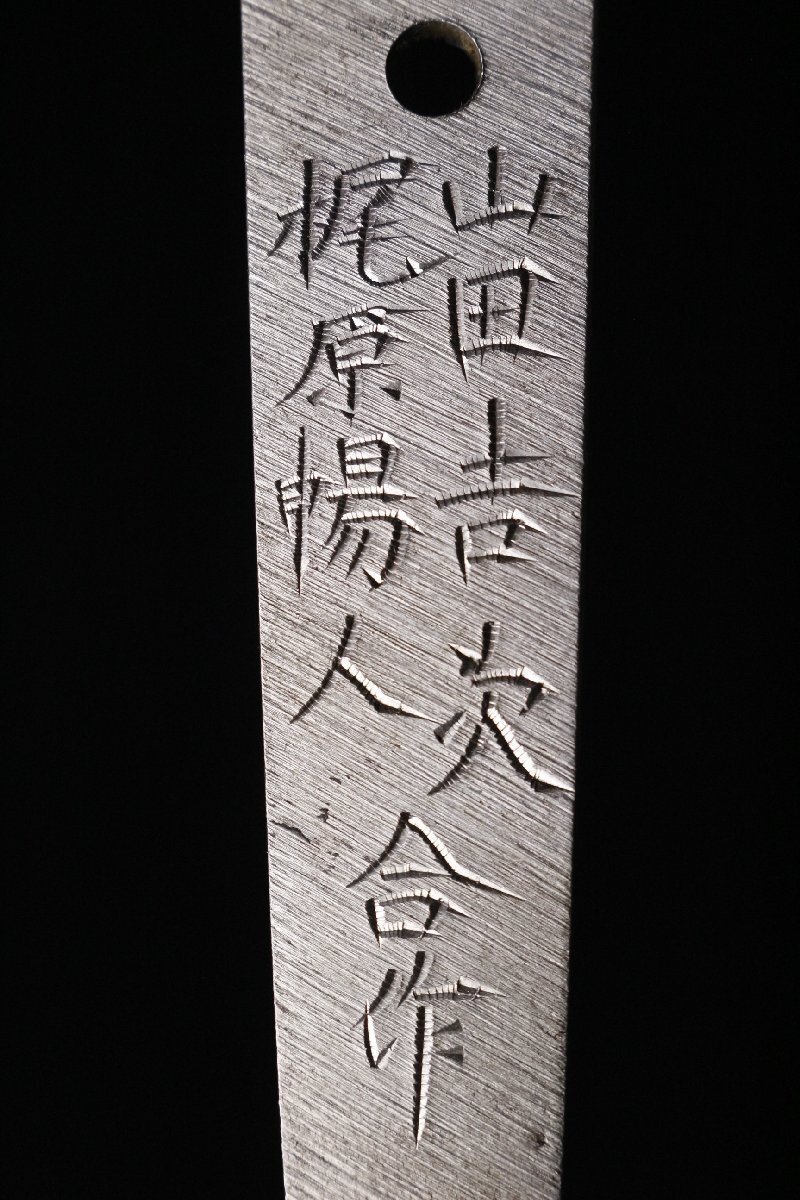 山田吉次
梶原暢人
合作